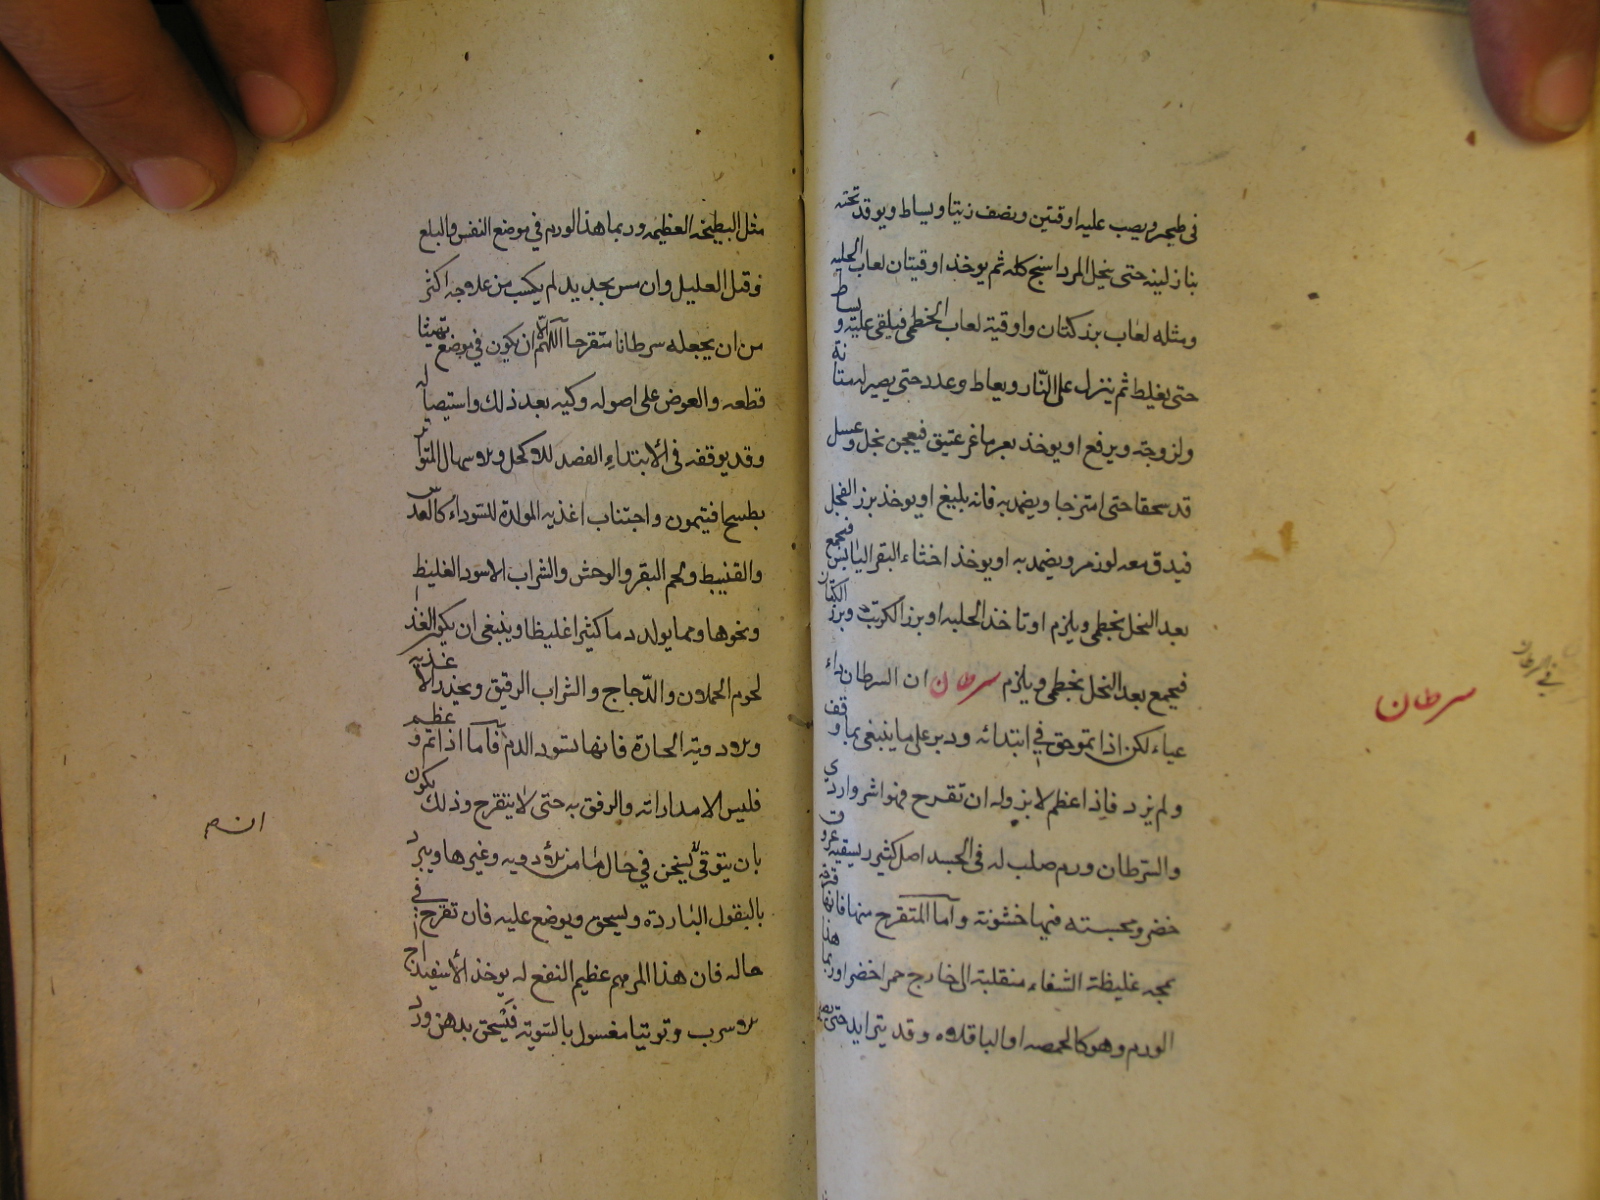 فى طنجير ويصب عليه اوقتين ونصف زيتا ويساط ويوقد تحته
بنار لينة حتى ينحل المرداسنج كله ثم يوخذ اوقيتان لعاب الحلبه
ومثله لعاب بزر كتان واوقية لعاب الخطمى فيلقى عليه ويسط
حتى يغلظ ثم ينزل على النّار ويعاط وعدد حتى يصير له متانة
ولزوجة ويرفع او يوخذ بعر ماعز عتيق فيعجن بخل وعسل
قد سحقا حتى امتزجا ويضمد به فانه بليغ او يوخذ بزر الفجل
فيدق معه لوز مر ويضمد به او يوخذ اخثاء البقر اليابس فيجمع
بعد النخل بخطمى ويلزم او تاخذ الحلبه او بزر الكرنب وبزر الكتان
فيجمع بعد النخل بخطمى ويلزم سرطان ان السرطان داء
عياء لكن اذا تموحق في ابتدائه ودبر على ما ينبغى بما وقف
ولم يزد فاذا عظم لا بزوله ان تقرح فهو اشر واردى
والسّرطان ورم صلب له فى الجسد اصل كثير يسقيه عروق
خضر ومجسته فيها خشونة وامّا المتقرح منها فانها قرحة
سمجه غليظة الشفاء منقلبة الى خارج حمر اخضر اوربما هذا
الورم وهو كالحمصه او الباقلاه وقد يتزايد حتى يصير
سرطان
مثل البطيخه العظيمه وربما هذا الورم في موضع النفس والبلع
فقتل العليل وان مس بحديد لم يكسب من علاوجه اكثر
من ان يجعله سرطانا متقرحا اللهّم الاّ ان يكون في موضع تهيئا
قطعه والعوض على اصوله وكيه بعد ذلك واستيصاله
وقد يوقفه فى الابتداءِ الفصد للاكحل وبلاسهال المتواتر
بطسح افتيمون واجتناب اغذيه المولدة للسّوداء كالعدس
والقنبيط ولحم البقر والوحش والشراب الاسود الغليظ
ونحوها ومما يولد دما كثيرا غليظا وينبغى ان يكون الغذا
لحوم الحملان والدّجاج والشراب الرقيق ويحذر الاغذيه
وبلادويه الحارة فانها تسود الدم فامّا اذا تم وعظم
فليس الا مداراته والرفق به حتى لا يتقرح وذلك يكون
بان يتوقى يسخن في حال ما من بلادويه وغيرها ويبرد
بالبقول الباردة ويسحق ويوضع عليه فان تقرح في
حاله فان هذا المرهم عظيم النفع له يوخذ الاسفيداج
بلاسرب وتوتيا مغسول بالسّوية فيسحق بدهن ورد